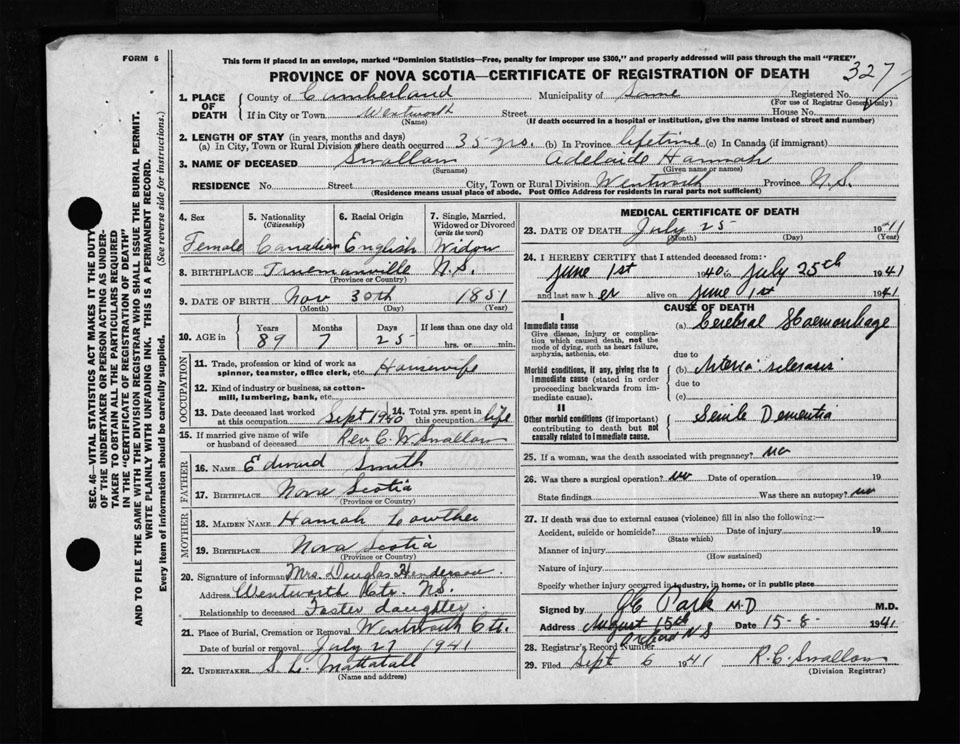 FORM 6
This form if placed in an envelope, marked "Dominion Statistics—Free, penalty for improper use $300," and properly addressed will pass through the mail "FREE"
PROVINCE OF NOVA SCOTIA—CERTIFICATE OF REGISTRATION OF DEATH 327
1. PLACE OF DEATH
County of Cumberland Municipality of Same Registered No.
(For use of Registrar General only)
If in City or Town Wentworth Street House No.
(Name) (If death occurred in a hospital or institution, give the name instead of street and number)
2. LENGTH OF STAY (in years, months and days)
(a) In City, Town or Rural Division where death occurred 35 yrs. (b) In Province lifetime (c) In Canada (if immigrant)
3. NAME OF DECEASED Swallow Adelaide Hannah
(Surname) (Given name or names)
RESIDENCE No. Street City, Town or Rural Division Wentworth Province N.S.
(Residence means usual place of abode. Post Office Address for residents in rural parts not sufficient)
4. Sex Female
5. Nationality (Citizenship) Canadian
6. Racial Origin English
7. Single, Married, Widowed or Divorced (write the word) Widow
8. BIRTHPLACE Truemanville N.S.
(Province or Country)
9. DATE OF BIRTH Nov 30th 1851
(Month) (Day) (Year)
10. AGE in Years 89 Months 7 Days 25 If less than one day old hrs. or min.
OCCUPATION
11. Trade, profession or kind of work as spinner, teamster, office clerk, etc. Housewife
12. Kind of industry or business, as cotton-mill, lumbering, bank, etc.
13. Date deceased last worked at this occupation Sept 1940 14. Total yrs. spent in this occupation life
15. If married give name of wife or husband of deceased Rev C. W. Swallow
FATHER
16. NAME Edward Smith
17. BIRTHPLACE Nova Scotia
(Province or Country)
MOTHER
18. MAIDEN NAME Hannah Lowther
19. BIRTHPLACE Nova Scotia
(Province or Country)
20. Signature of informant Mrs. Douglas Henderson.
Address Wentworth Ctr. N.S.
Relationship to deceased Foster daughter
21. Place of Burial, Cremation or Removal Wentworth Ctr.
Date of burial or removal July 27 1941
22. UNDERTAKER S. L. Mattatall
(Name and address)
MEDICAL CERTIFICATE OF DEATH
23. DATE OF DEATH July 25 1941
(Month) (Day) (Year)
24. I HEREBY CERTIFY that I attended deceased from:-
June 1st 1940 to July 25th 1941
and last saw her alive on June 1st 1941
CAUSE OF DEATH
I
Immediate cause (a) Cerebral Haemorrhage
Give disease, injury or complication which caused death, not the mode of dying, such as heart failure, asphyxia, asthenia, etc.
due to
Morbid conditions, if any, giving rise to immediate cause (stated in order proceeding backwards from immediate cause).
(b) Arterio sclerosis
due to
(c)
II
Other morbid conditions (if important) contributing to death but not causally related to immediate cause.
Senile Dementia
25. If a woman, was the death associated with pregnancy? no
26. Was there a surgical operation? no Date of operation 19
State findings Was there an autopsy? no
27. If death was due to external causes (violence) fill in also the following:—
Accident, suicide or homicide? Date of injury 19
(State which)
Manner of injury
(How sustained)
Nature of injury
Specify whether injury occurred in industry, in home, or in public place
Signed by Park M.D M.D.
Address August 15th Date 15-8- 1941
N S
28. Registrar's Record Number
29. Filed Sept 6 1941 R. C. Swallow
(Division Registrar)
SEC. 46—VITAL STATISTICS ACT MAKES IT THE DUTY
OF THE UNDERTAKER OR PERSON ACTING AS UNDER-
TAKER TO OBTAIN ALL THE PARTICULARS REQUIRED
IN THE "CERTIFICATE OF REGISTRATION OF DEATH"
AND TO FILE THE SAME WITH THE DIVISION REGISTRAR WHO SHALL ISSUE THE BURIAL PERMIT.
WRITE PLAINLY WITH UNFADING INK. THIS IS A PERMANENT RECORD.
Every item of information should be carefully supplied. (See reverse side for instructions.)